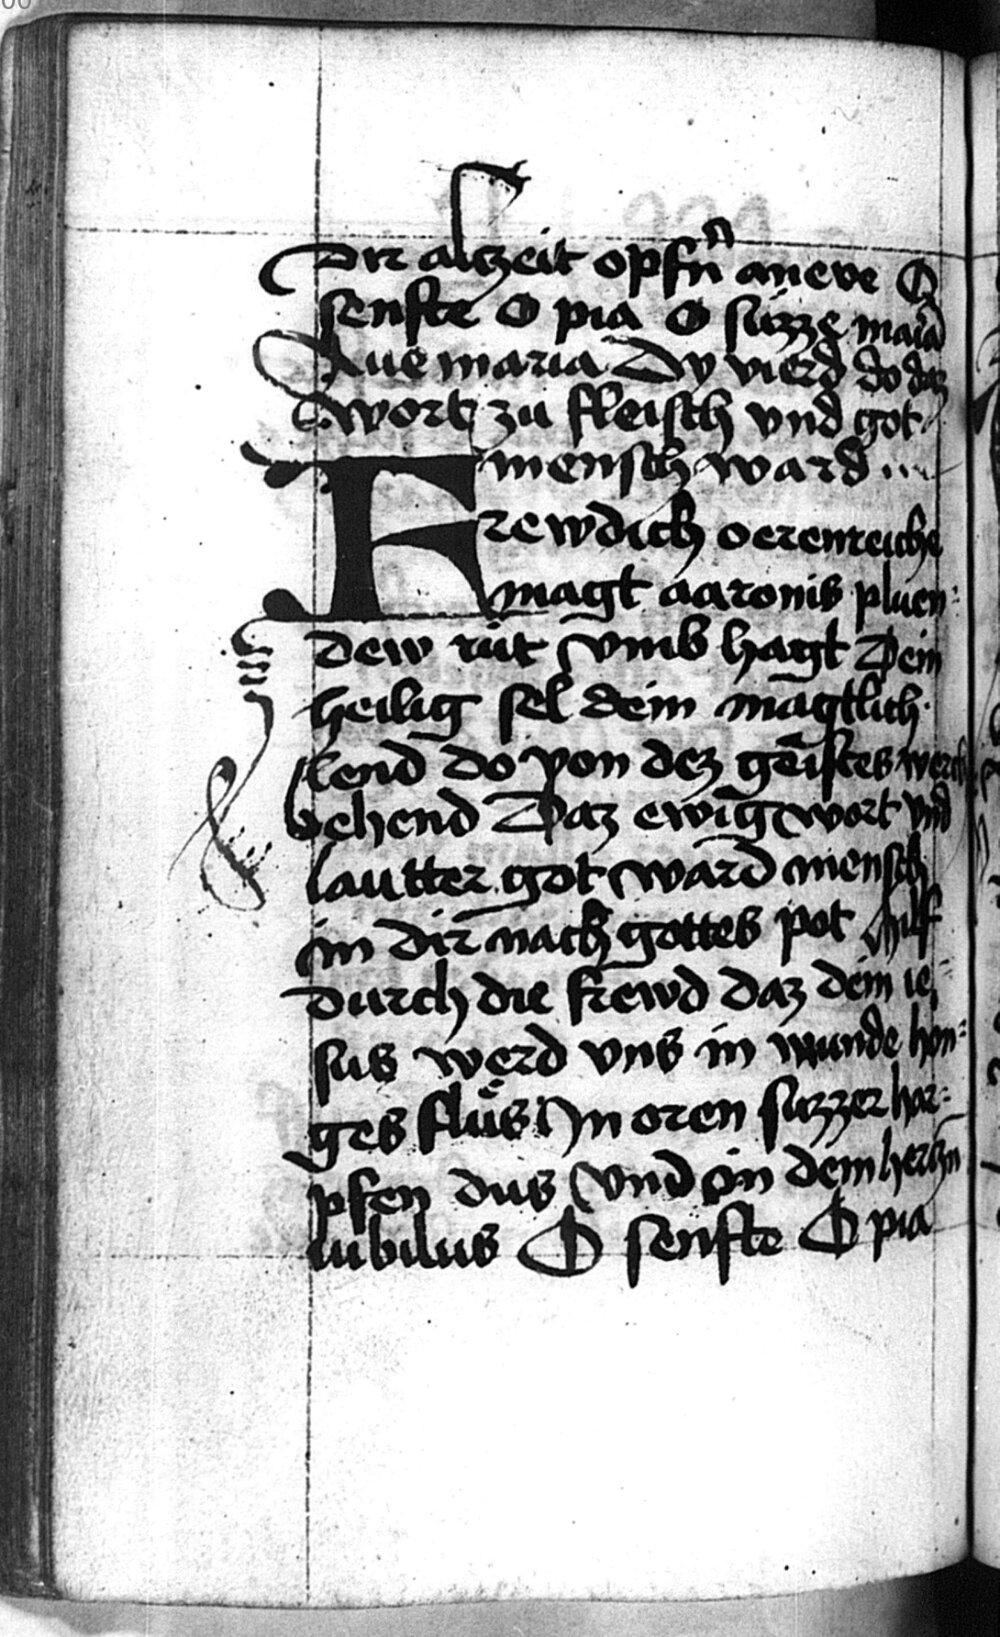 Dir alczeit opfñ aneve O
senfte O pia O süzze maria
Aue maria Dy vierd do daz
wort zu fleisch vnd got
mensch ward ...
Frew dich oerenreiche
magt aaronis pluen=
dew rüt vmb hagt Dein
heilig sel dein magtlich
lend do von dez gaistes werch
behend Daz ewig wort vnd
lautter got ward mensch
in dir nach gottes pot hilf
durch die frewd daz dein ie=
sus werd vns in munde hon=
ges flüs In oren suzzer har=
pfen dus Vnd in dem herczn
iubilus O senfte O pia